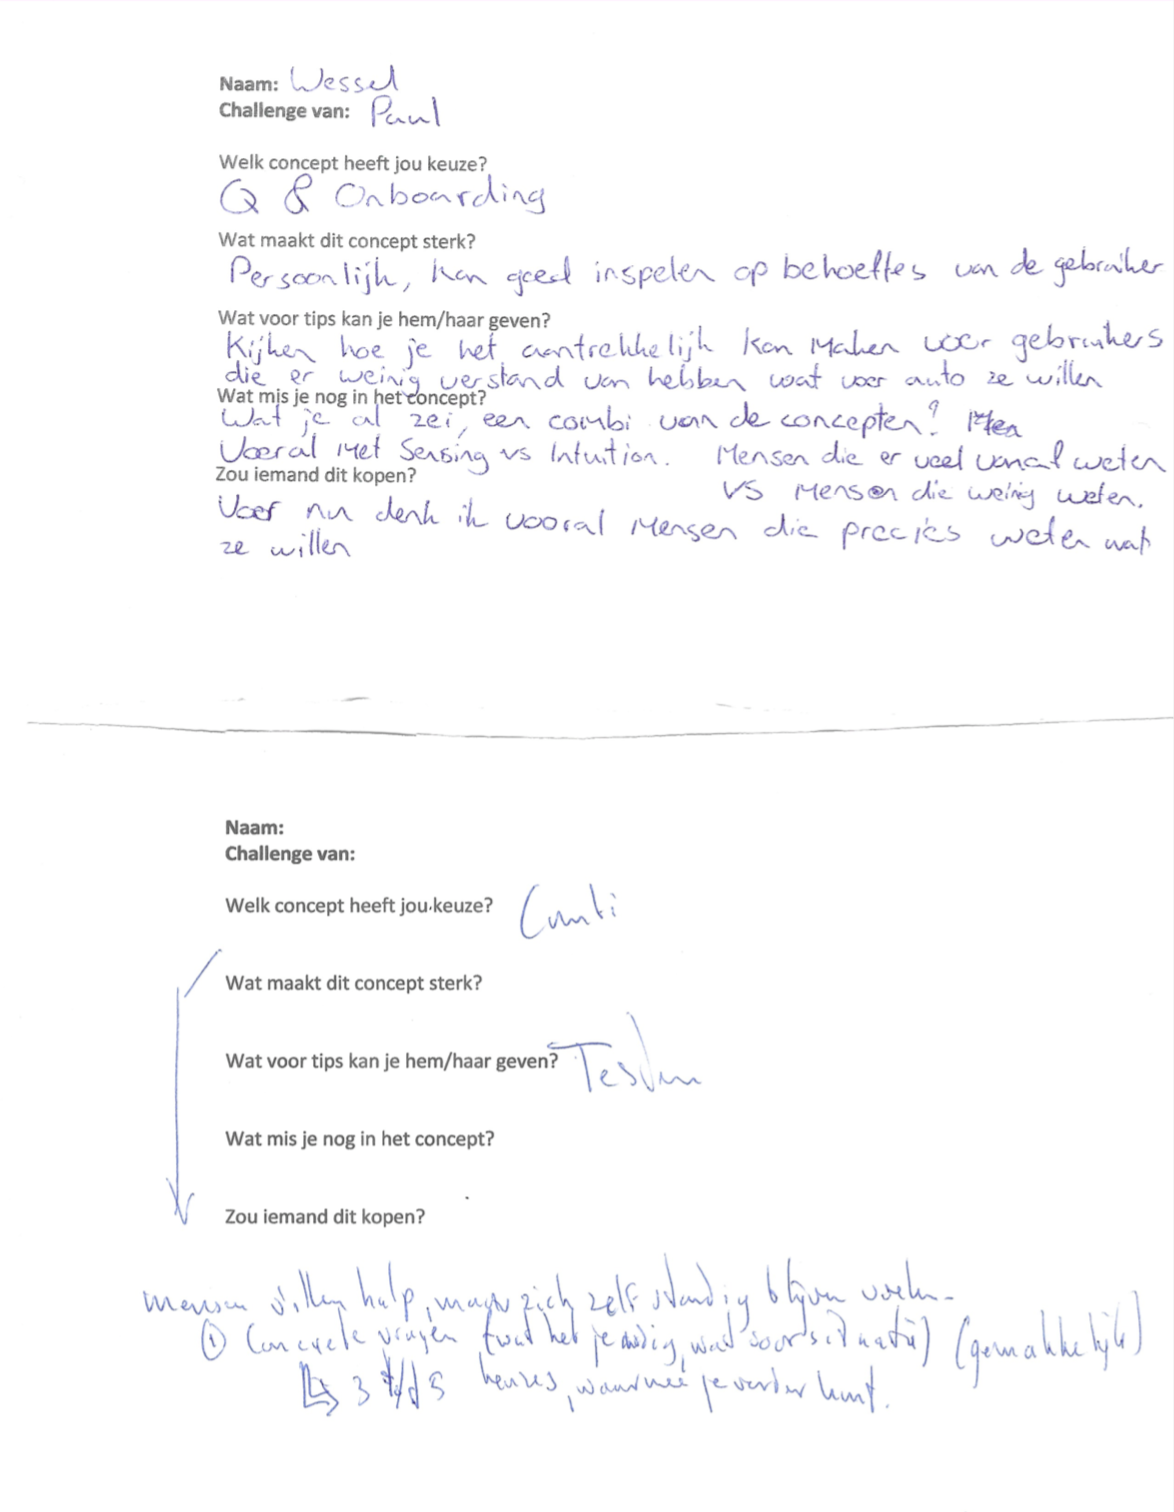 Naam: Wessel
Challenge van: Paul
Welk concept heeft jou keuze?
Q & Onboarding
Wat maakt dit concept sterk?
Persoonlijk, kan goed inspelen op behoeftes van de gebruiker
Wat voor tips kan je hem/haar geven?
Kijken hoe je het aantrekkelijk kan maken voor gebruikers
die er weinig verstand van hebben wat voor auto ze willen
Wat mis je nog in het concept?
Wat je al zei, een combi van de concepten?
Vooral met Sensing vs Intuition. Mensen die er veel vanaf weten
vs mensen die weinig weten.
Zou iemand dit kopen?
Voor nu denk ik vooral mensen die precies weten wat
ze willen
Naam:
Challenge van:
Welk concept heeft jou keuze? Combi
Wat maakt dit concept sterk?
Wat voor tips kan je hem/haar geven? Testen
Wat mis je nog in het concept?
Zou iemand dit kopen?
mensen willen hulp, maar zich zelfstandig blijven voelen.
① Concrete vragen (wat heb je nodig, wat voor situatie) (gemakkelijk)
↳ 3 t/d 5 keuzes, waarmee je verder kunt.